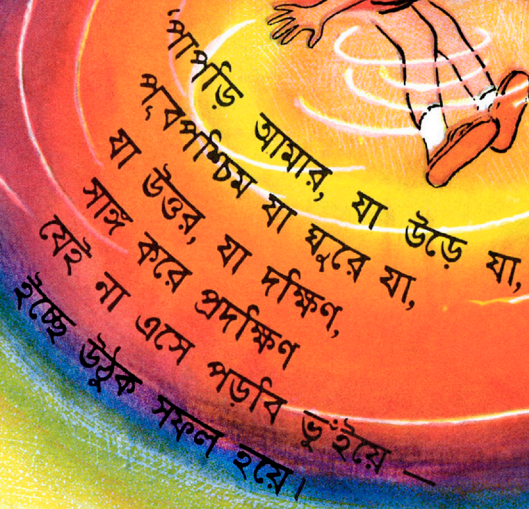 'পাপড়ি আমার, যা উড়ে যা,
পূবপশ্চিম যা ঘুরে যা,
যা উত্তর, যা দক্ষিণ,
সাঙ্গ করে প্রদক্ষিণ
যেই না এসে পড়বি ভুঁইয়ে —
ইচ্ছে উঠুক সফল হয়ে।